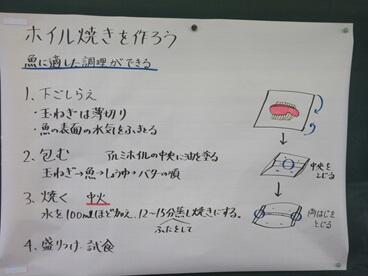 ホイル焼きを作ろう
魚に適した調理ができる
1. 下ごしらえ
・玉ねぎは薄切り
・魚の表面の水気をふきとる
2. 包む アルミホイルの中央に油を塗る
玉ねぎ→魚→しょうゆ→バターの順
3. 焼く 中火
水を100mlほど加え、12〜15分蒸し焼きにする。
ふたをして
4. 盛りつけ・試食
中央を
とじる
両はじを
とじる